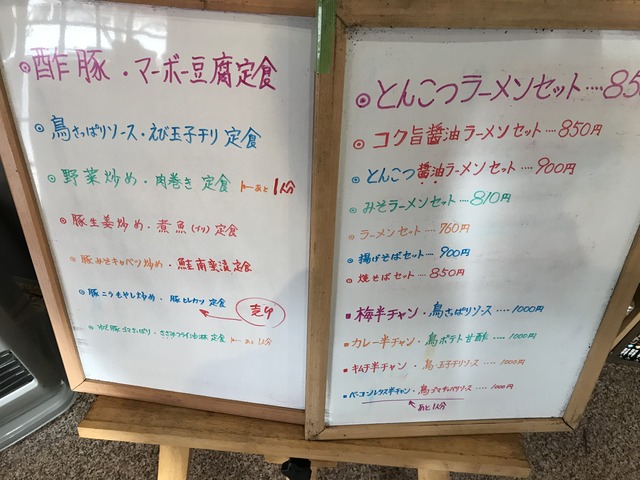 ◎酢豚・マーボー豆腐定食
◎鳥さっぱりソース・えび玉子チリ定食
◎野菜炒め・肉巻き定食 あと1人分
◎豚生姜炒め・煮魚(ブリ)定食
◎豚みそキャベツ炒め・鮭南蛮漬定食
◎豚こうもやし炒め・豚ヒレカツ定食
売切
ゆで豚ゴマさっぱり・ささみフライ 定食 あと1人分
◎とんこつラーメンセット‥‥85
◎コク旨醤油ラーメンセット‥‥850円
◎とんこつ醤油ラーメンセット‥‥900円
◎みそラーメンセット‥‥810円
◎ラーメンセット‥‥760円
◎揚げそばセット‥‥900円
◎焼そばセット‥‥850円
■梅半チャン・鳥さっぱりソース‥‥1000円
■カレー半チャン・鳥ポテト甘酢‥‥1000円
■キムチ半チャン・鳥玉子チリソース‥‥1000円
■ベーコンレタス半チャン・鳥ゴマ ソース‥‥1000円
あと1人分